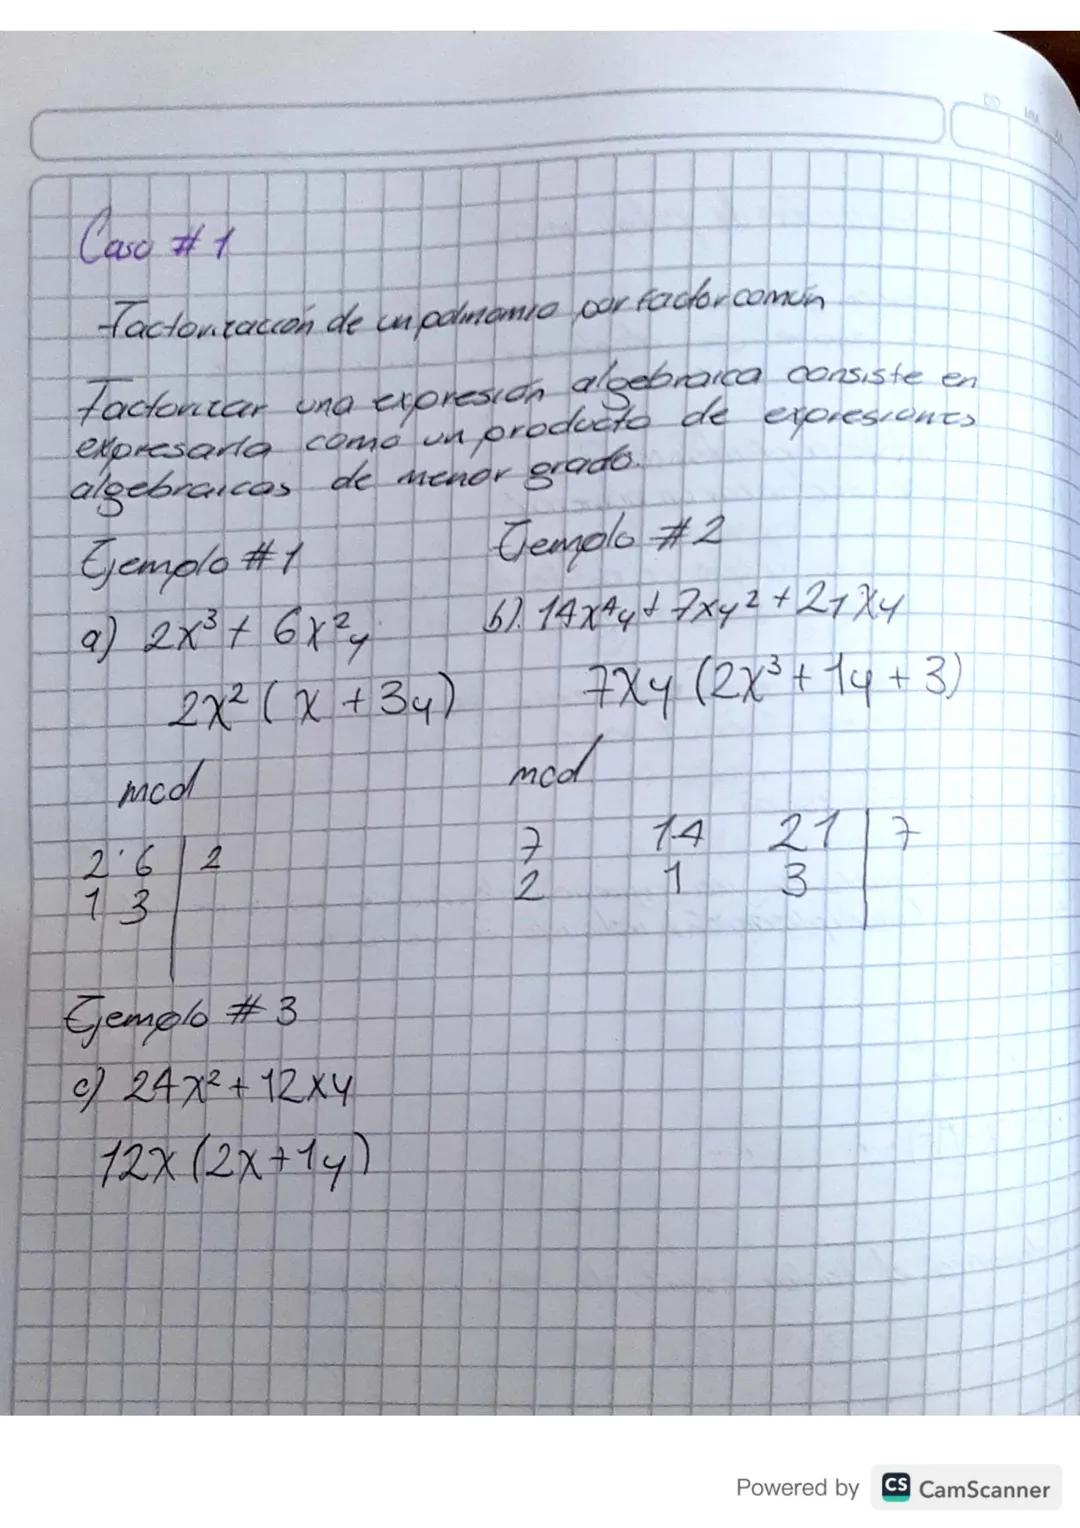 Caso # 1
Factorización de un polinomio por factor común
Factorizar una expresión algebraica consiste en
expresarla como un producto de expresiones
algebraicas de menor grado.
Ejemplo #1
a) 2x³ + 6x²y
2x² ( x + 3y)
mcd
2 6 | 2
1 3
Ejemplo #2
b). 14x⁴y + 7xy² + 21xy
7xy (2x³ + 1y + 3)
mcd
7 14 21 | 7
2 1 3
Ejemplo # 3
c) 24x² + 12xy
12x (2x + 1y)
Powered by CS CamScanner